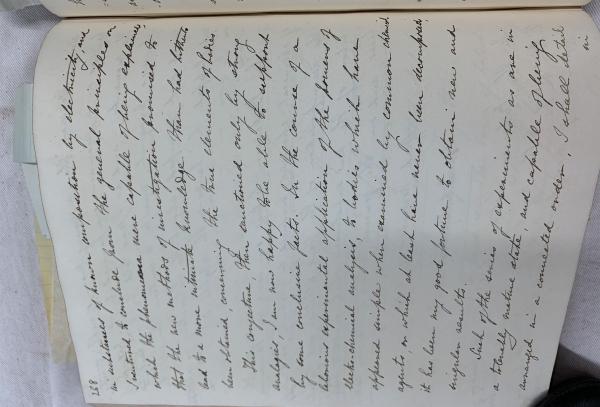 268
in substances of known composition by electricity, and
I ventured to conclude from the general principles on
which the phenomena were capable of being explained
that the new methods of investigation promised to
lead to a more intimate knowledge than had hitherto
been obtained, concerning the true elements of bodies.
This conjecture then sanctioned only by strong
analogies, I am now happy to be able to support
by some conclusive facts. In the course of a
laborious experimental application of the powers of
electro-chemical analysis, to bodies which have
appeared simple when examined by common chemical
agents, or which at least have never been decomposed,
it has been my good fortune to obtain new and
singular results.
Such of the series of experiments as are in
a tolerably mature state, and capable of being
arranged in a connected order, I shall detail
in